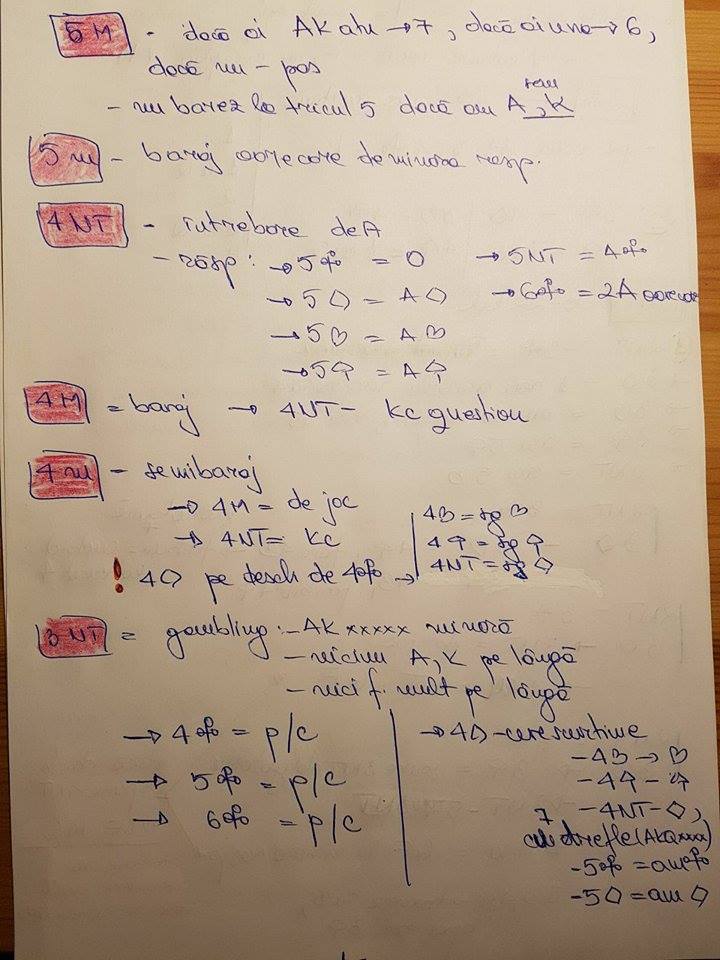 5M - dacă ai AK atu → 7, dacă ai una → 6,
dacă nu - pas
- nu barez la tricul 5 dacă am A, K
5m - baraj oarecare de minora resp.
4NT - intrebare de A
- răsp: → 5♣ = 0 → 5NT = 4♣
→ 5♢ = A♢ → 6♣ = 2A oarecare
→ 5♡ = A♡
→ 5♤ = A♤
4M = baraj → 4NT - KC question
4m - semibaraj
→ 4M = de joc
→ 4NT = KC
! 4♢ pe desch de 4♣ →
4♡ = sg ♡
4♤ = sg ♤
4NT = sg ♢
3NT = gambling: - AKxxxxx minoră
- niciun A, K pe lângă
- nici f. mult pe lângă
→ 4♣ = p/c
→ 5♣ = p/c
→ 6♣ = p/c
→ 4♢ - cere scurtime
- 4♡ → ♡
- 4♤ - ♤
- 4NT - ♢,
7 trefle (AKQxxxx)
- 5♣ = am ♣
- 5♢ = am ♢